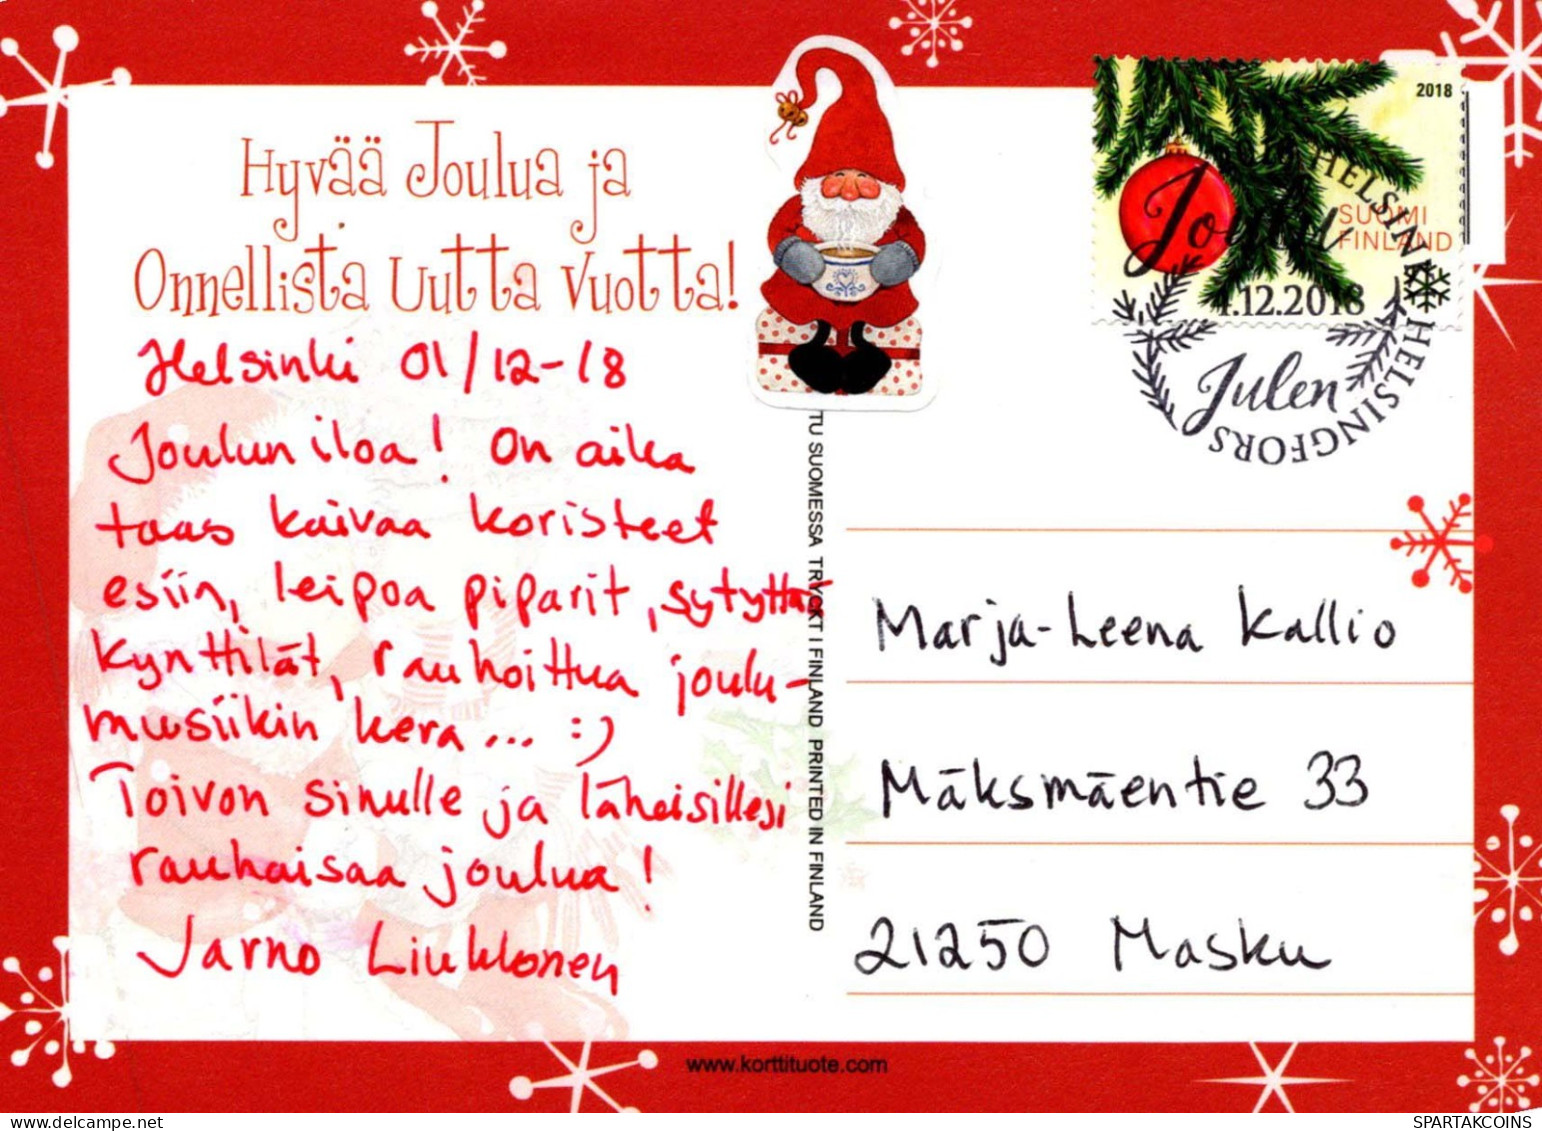 Hyvää Joulua ja
Onnellista Uutta Vuotta!
Helsinki 01/12-18
Joulun iloa! On aika
taas kaivaa koristeet
esiin, leipoa piparit, sytyttää
kynttilät, rauhoittua joulu-
musiikin kera... :)
Toivon sinulle ja läheisillesi
rauhaisaa joulua!
Jarno Liukkonen
TU SUOMESSA TRYCKT I FINLAND PRINTED IN FINLAND
2018
SUOMI
FINLAND
HELSINKI HELSINGFORS
Joulu
4.12.2018
Julen
Marja-Leena Kallio
Mäksmäentie 33
21250 Masku
www.korttituote.com
SPARTAKCOINS